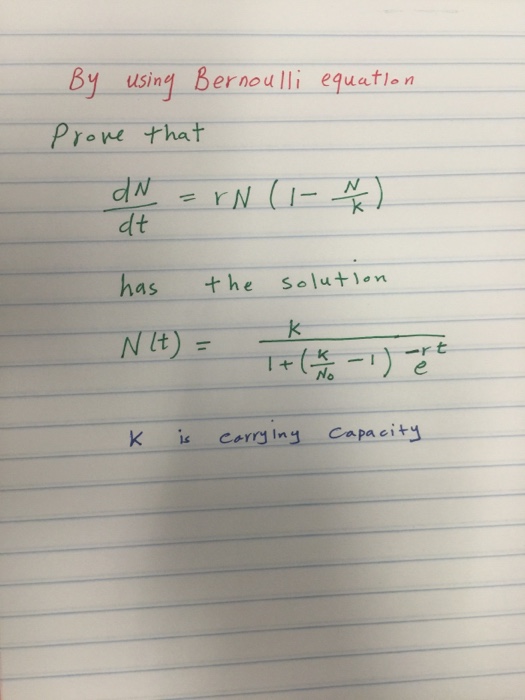 By using Bernoulli equation
Prove that
dN/dt = rN (1 - N/K)
has the solution
N(t) = K / (1 + (K/N₀ - 1) e^-rt)
K is carrying capacity